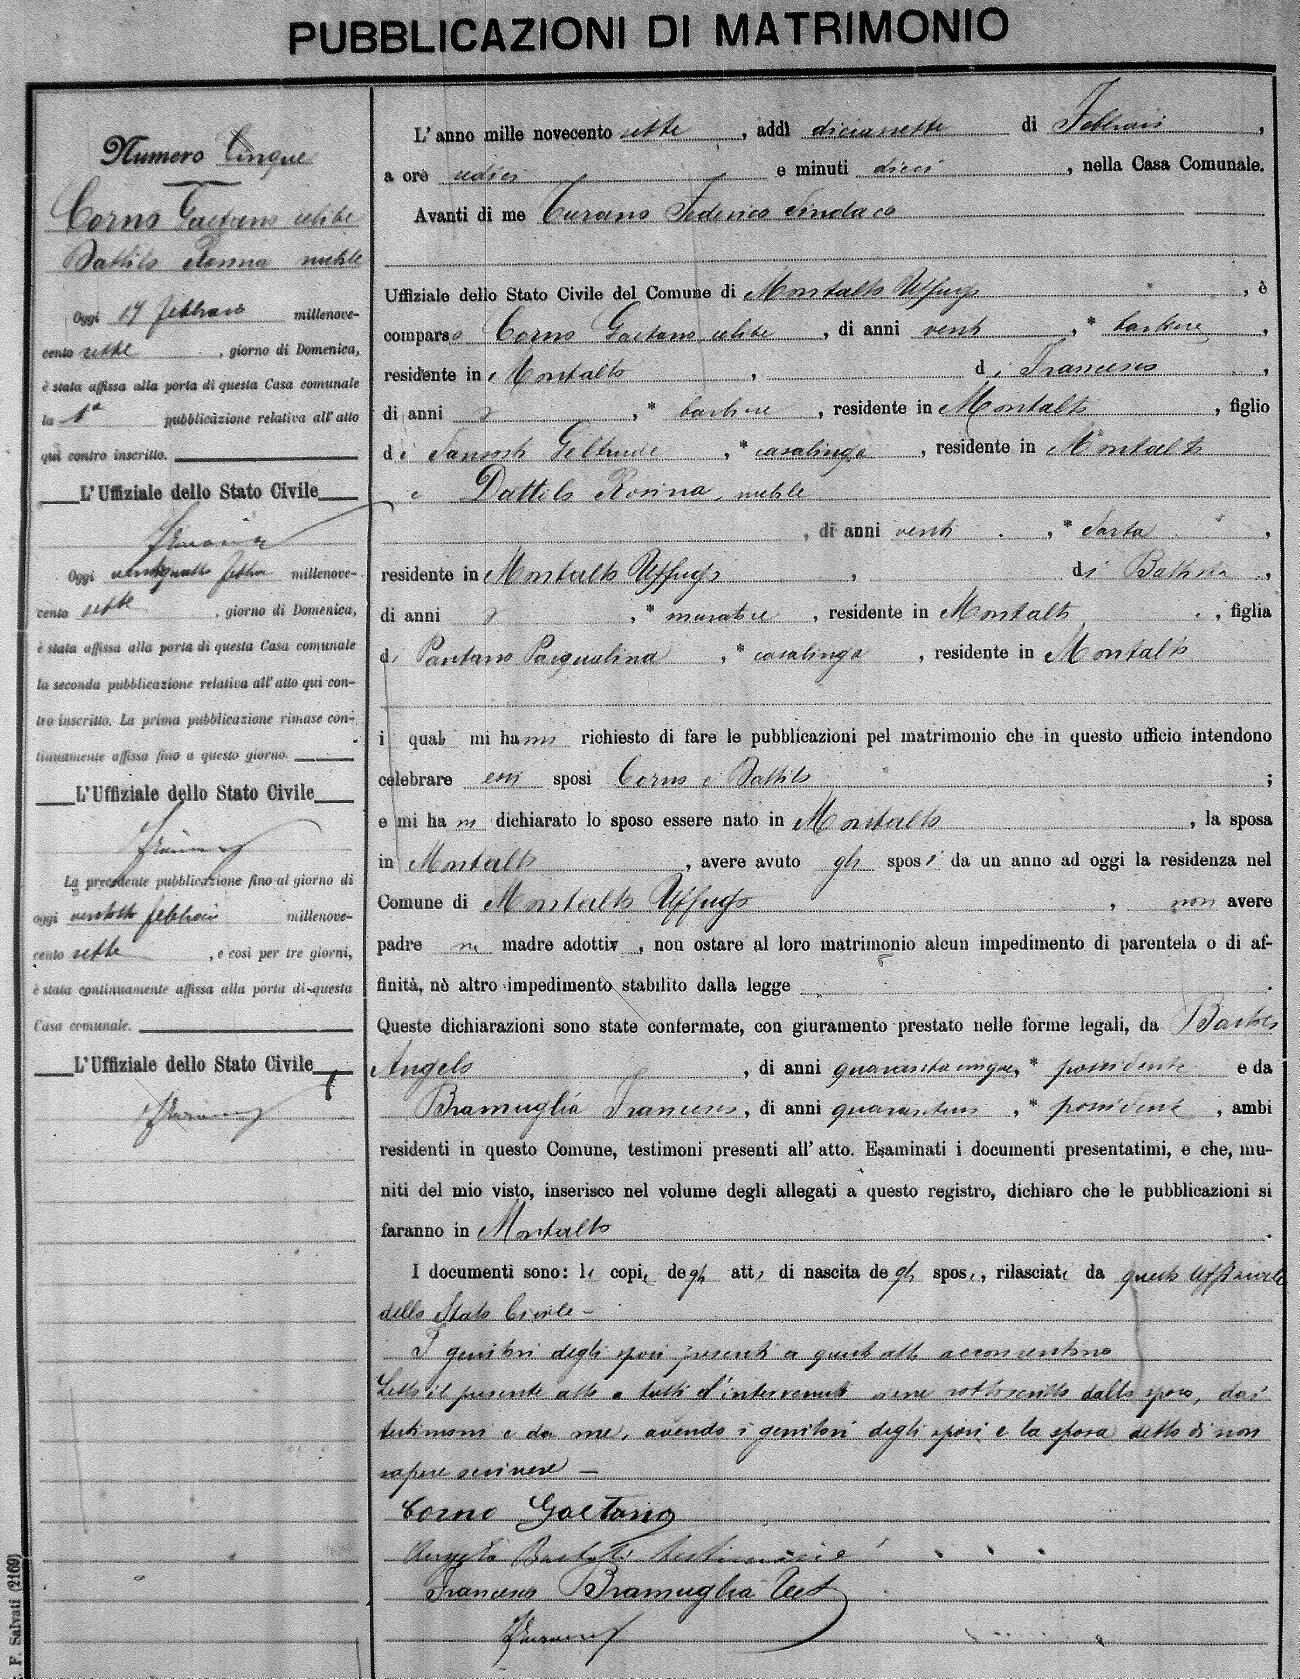 PUBBLICAZIONI DI MATRIMONIO
Numero Cinque
Corno Gaetano celibe
Dattilo Rosina nubile
Oggi 17 febbraio millenove-
cento sette, giorno di Domenica,
è stata affissa alla porta di questa Casa comunale
la 1ª pubblicazione relativa all'atto
qui contro inscritto.
L'Uffiziale dello Stato Civile
Oggi ventiquattro febbr millenove-
cento sette, giorno di Domenica,
è stata affissa alla porta di questa Casa comunale
la seconda pubblicazione relativa all'atto qui con-
tro inscritto. La prima pubblicazione rimase con-
tinuamente affissa fino a questo giorno.
L'Uffiziale dello Stato Civile
La precedente pubblicazione fino al giorno di
oggi ventotto febbraio millenove-
cento sette, e così per tre giorni,
è stata continuamente affissa alla porta di questa
Casa comunale.
L'Uffiziale dello Stato Civile
F. Salvati (2169)
L'anno mille novecento sette, addì diciassette di Febbraio,
a ore undici e minuti dieci, nella Casa Comunale.
Avanti di me Turano Federico Sindaco
Uffiziale dello Stato Civile del Comune di Montalto Uffugo, è
comparso Corno Gaetano celibe, di anni venti, * barbiere,
residente in Montalto, di Francesco,
di anni, * barbiere, residente in Montalto, figlio
di Geltrude, * casalinga, residente in Montalto
e Dattilo Rosina, nubile
, di anni venti, * sarta,
residente in Montalto Uffugo, di Battista,
di anni, * muratore, residente in Montalto, figlia
di Pantano Pasqualina, * casalinga, residente in Montalto
i quali mi hanno richiesto di fare le pubblicazioni pel matrimonio che in questo ufficio intendono
celebrare essi sposi Corno e Dattilo;
e mi han dichiarato lo sposo essere nato in Montalto, la sposa
in Montalto, avere avuto gli sposi da un anno ad oggi la residenza nel
Comune di Montalto Uffugo, non avere
padre ne madre adottiv, non ostare al loro matrimonio alcun impedimento di parentela o di af-
finità, nè altro impedimento stabilito dalla legge.
Queste dichiarazioni sono state confermate, con giuramento prestato nelle forme legali, da
Angelo, di anni quarantacinque, * possidente e da
Bramuglia Francesco, di anni, * possidente, ambi
residenti in questo Comune, testimoni presenti all'atto. Esaminati i documenti presentatimi, e che, mu-
niti del mio visto, inserisco nel volume degli allegati a questo registro, dichiaro che le pubblicazioni si
faranno in Montalto.
I documenti sono: le copie degli atti di nascita degli sposi, rilasciate da questo Uffiziale
dello Stato Civile —
I genitori degli sposi presenti a questo atto acconsentono
Letto il presente atto a tutti gl'intervenuti viene sottoscritto dallo sposo, dai
testimoni e da me, avendo i genitori degli sposi e la sposa detto di non
sapere scrivere —
Corno Gaetano
Angelo testimonie
Francesco Bramuglia Test